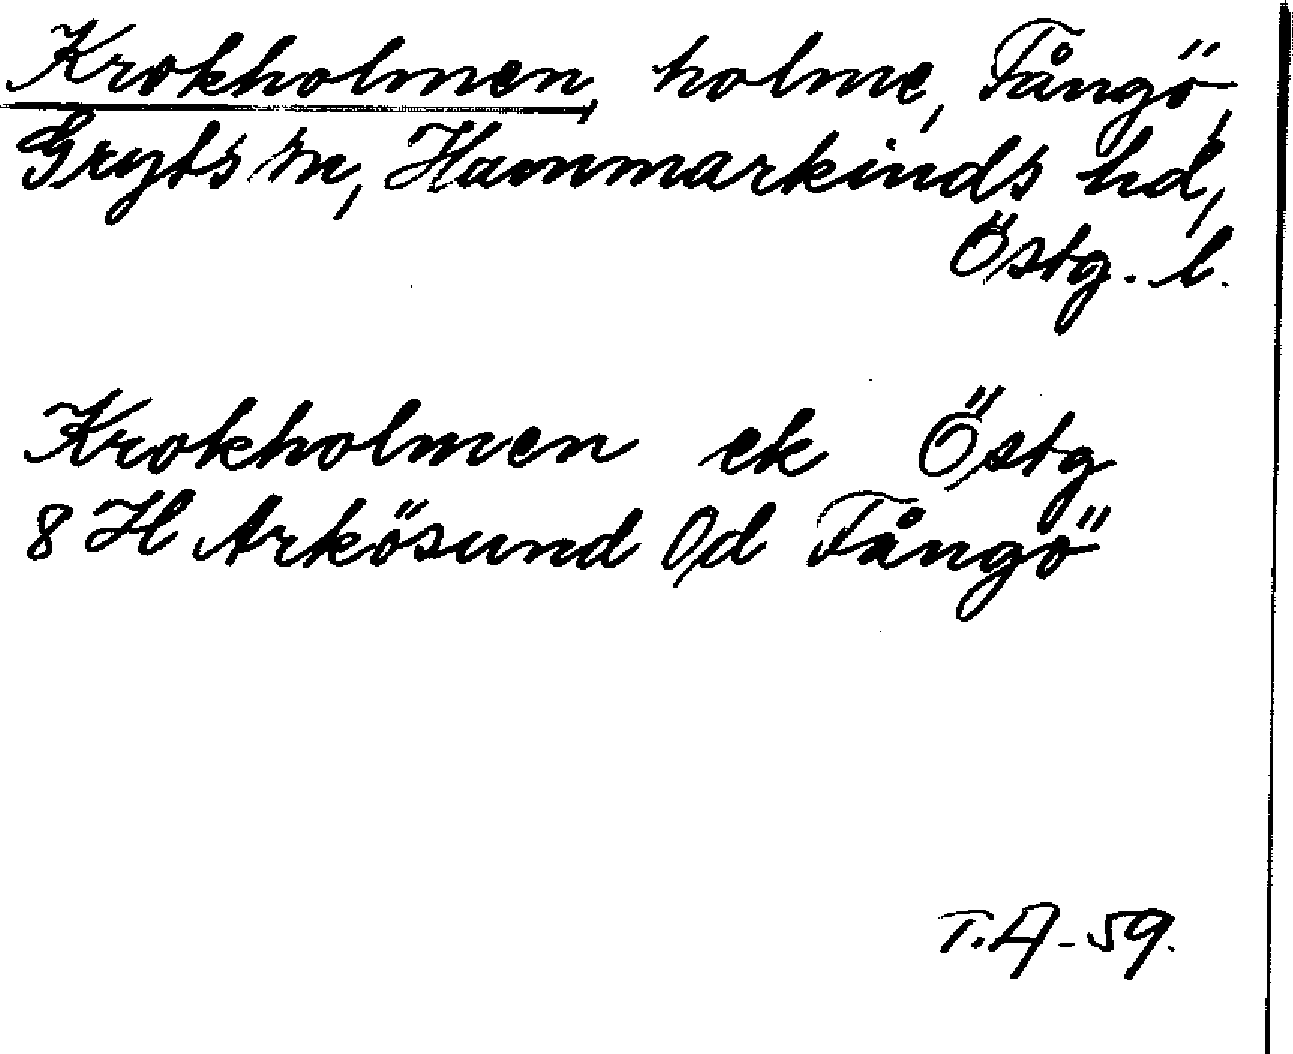 Krokholmen, holme, Fångö,
Gryts sn, Hammarkinds hd,
Östg. l.
Krokholmen ek Östg
8 H Arkösund Od Fångö
T.A-59.